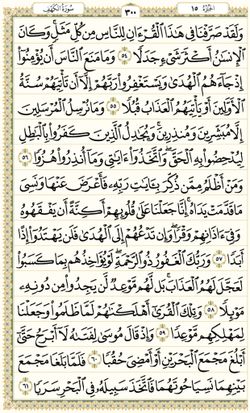 سورة الكهف ٣٠٠ الجزء ١٥
ولقد صرفنا في هذا القرءان للناس من كل مثل وكان
الإنسن أكثر شيء جدلا ٥٤ وما منع الناس أن يؤمنوا
إذ جاءهم الهدى ويستغفروا ربهم إلا أن تأتيهم سنة
الأولين أو يأتيهم العذاب قبلا ٥٥ وما نرسل المرسلين
إلا مبشرين ومنذرين ويجدل الذين كفروا بالبطل
ليدحضوا به الحق واتخذوا ءايتي وما أنذروا هزوا ٥٦
ومن أظلم ممن ذكر بءايت ربه فأعرض عنها ونسي
ما قدمت يداه إنا جعلنا على قلوبهم أكنة أن يفقهوه
وفي ءاذانهم وقرا وإن تدعهم إلى الهدى فلن يهتدوا إذا
أبدا ٥٧ وربك الغفور ذو الرحمة لو يؤاخذهم بما كسبوا
لعجل لهم العذاب بل لهم موعد لن يجدوا من دونه
موئلا ٥٨ وتلك القرى أهلكنهم لما ظلموا وجعلنا
لمهلكهم موعدا ٥٩ وإذ قال موسى لفتىه لا أبرح حتى
أبلغ مجمع البحرين أو أمضي حقبا ٦٠ فلما بلغا مجمع
بينهما نسيا حوتهما فاتخذ سبيله في البحر سربا ٦١